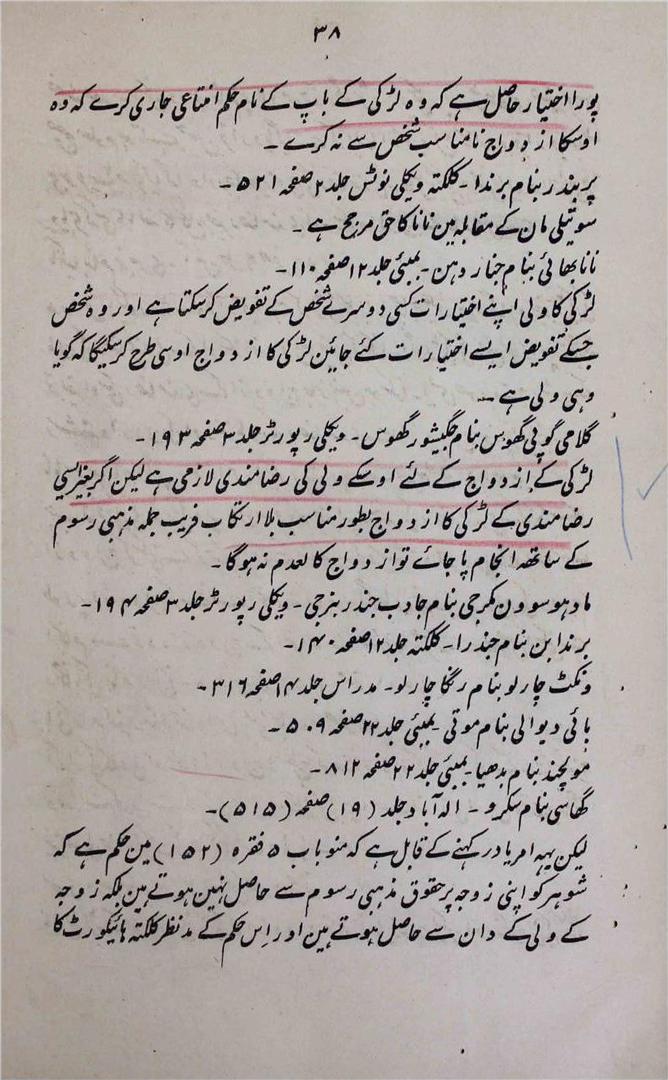 ۳۸
پورا اختیار حاصل ہے کہ وہ لڑکی کے باپ کے نام حکم امتناعی جاری کرے کہ وہ
اوسکا ازدواج نامناسب شخص سے نہ کرے ۔
پربندر بنام برندا ۔ کلکتہ ویکلی نوٹس جلد ۲ صفحہ ۵۲۱ ۔
سوتیلی مان کے مقابلہ مین نانا کا حق مرجح ہے ۔
نانا بھائی بنام جنار دھن ۔ بمبئی جلد ۱۲ صفحہ ۱۱۰ ۔
لڑکی کا ولی اپنے اختیارات کسی دوسرے شخص کے تفویض کر سکتا ہے اور وہ شخص
جسکے تفویض ایسے اختیارات کئے جائین لڑکی کا ازدواج اوسی طرح کر سکیگا کہ گویا
وہی ولی ہے ۔
گلامی گوپی گھوس بنام جگیشور گھوس ۔ ویکلی رپورٹر جلد ۳ صفحہ ۱۹۳ ۔
لڑکی کے ازدواج کے لئے اوسکے ولی کی رضامندی لازمی ہے لیکن اگر بغیر ایسی
رضامندی کے لڑکی کا ازدواج بطور مناسب بلا ارتکاب فریب جملہ مذہبی رسوم
کے ساتھہ انجام پا جائے تو ازدواج کالعدم نہ ہوگا ۔
مادہوسودن مکرجی بنام جادب چندر بنرجی ۔ ویکلی رپورٹر جلد ۳ صفحہ ۱۹۴ ۔
برندابن بنام چندرا ۔ کلکتہ جلد ۱۲ صفحہ ۱۴۰ ۔
ونکٹ چارلو بنام رنگا چارلو ۔ مدراس جلد ۱۴ صفحہ ۳۱۶ ۔
بائی دیوالی بنام موتی ۔ بمبئی جلد ۲۲ صفحہ ۵۰۹ ۔
مولچند بنام بدھیا ۔ بمبئی جلد ۲۲ صفحہ ۸۱۲ ۔
گھاسی بنام سکرو ۔ الہ آباد جلد (۱۹) صفحہ (۵۱۵) ۔
لیکن یہہ امر یاد رکہنے کے قابل ہے کہ منو باب ۵ فقرہ (۱۵۲) مین حکم ہے کہ
شوہر کو اپنی زوجہ پر حقوق مذہبی رسوم سے حاصل نہین ہوتے ہین بلکہ زوجہ
کے ولی کے دان سے حاصل ہوتے ہین اور اس حکم کے مدنظر کلکتہ ہائیکورٹ کا